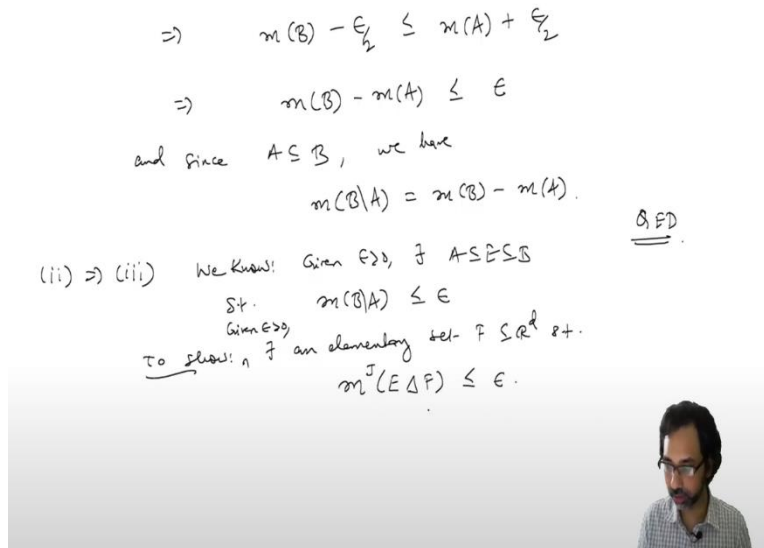 ⇒ m(B) − ε/2 ≤ m(A) + ε/2
⇒ m(B) − m(A) ≤ ε
and since A ⊆ B, we have
m(B\A) = m(B) − m(A).
QED
(ii) ⇒ (iii) We know: Given ε>0, ∃ A⊆E⊆B
st. m(B\A) ≤ ε
Given ε>0,
To show: ∧ ∃ an elementary set F ⊆ ℝᵈ st.
mᴶ(E Δ F) ≤ ε.